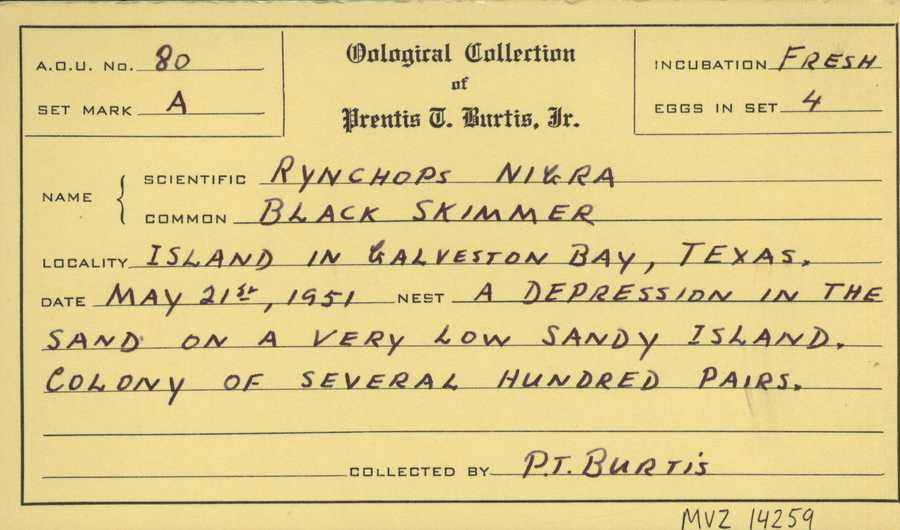 A.O.U. No. 80
SET MARK A
Oological Collection
of
Prentis T. Burtis, Jr.
INCUBATION FRESH
EGGS IN SET 4
NAME
SCIENTIFIC RYNCHOPS NIGRA
COMMON BLACK SKIMMER
LOCALITY ISLAND IN GALVESTON BAY, TEXAS.
DATE MAY 21st, 1951 NEST A DEPRESSION IN THE
SAND ON A VERY LOW SANDY ISLAND.
COLONY OF SEVERAL HUNDRED PAIRS.
COLLECTED BY P.T. BURTIS
MVZ 14259